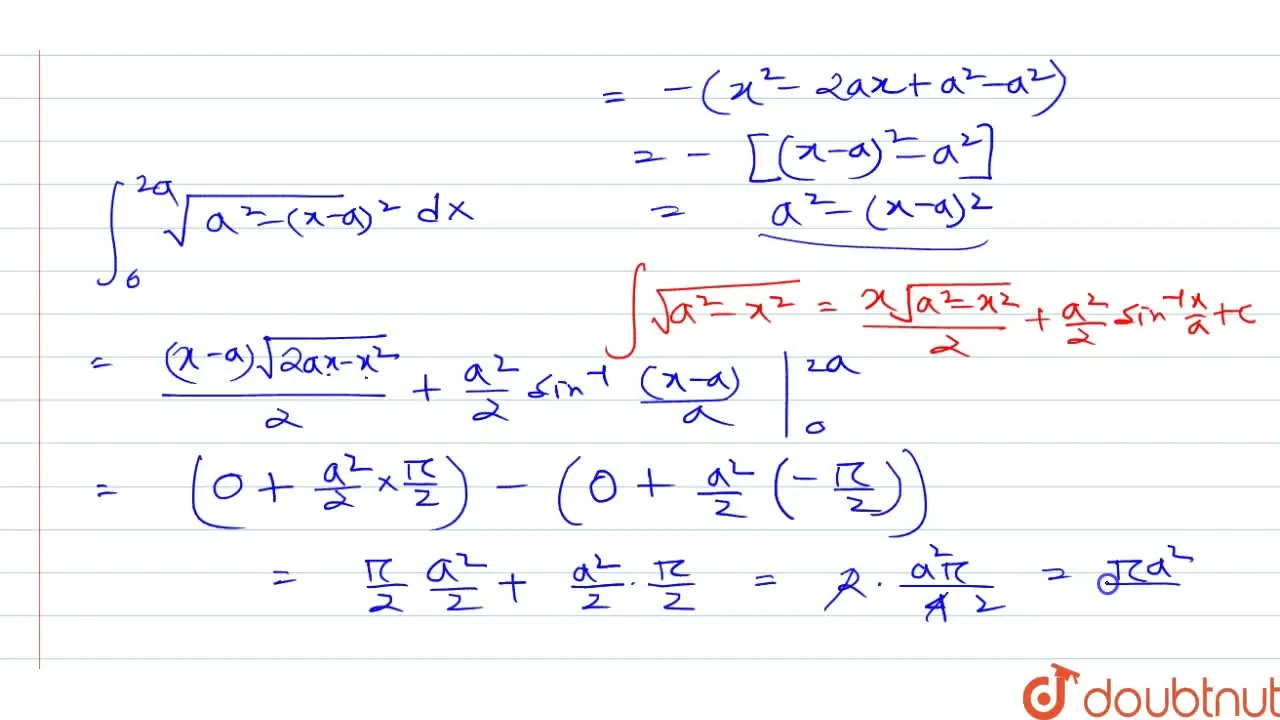 = -(x² - 2ax + a² - a²)
= - [(x-a)² - a²]
∫₀^2a √(a² - (x-a)²) dx
= a² - (x-a)²
∫ √(a² - x²) = x√(a² - x²)/2 + a²/2 sin⁻¹ x/a + c
= (x-a)√(2ax - x²)/2 + a²/2 sin⁻¹ (x-a)/a |₀^2a
= (0 + a²/2 × π/2) - (0 + a²/2 (-π/2))
= π/2 a²/2 + a²/2 · π/2 = 2 · a²π/4 2 = πa²
doubtnut